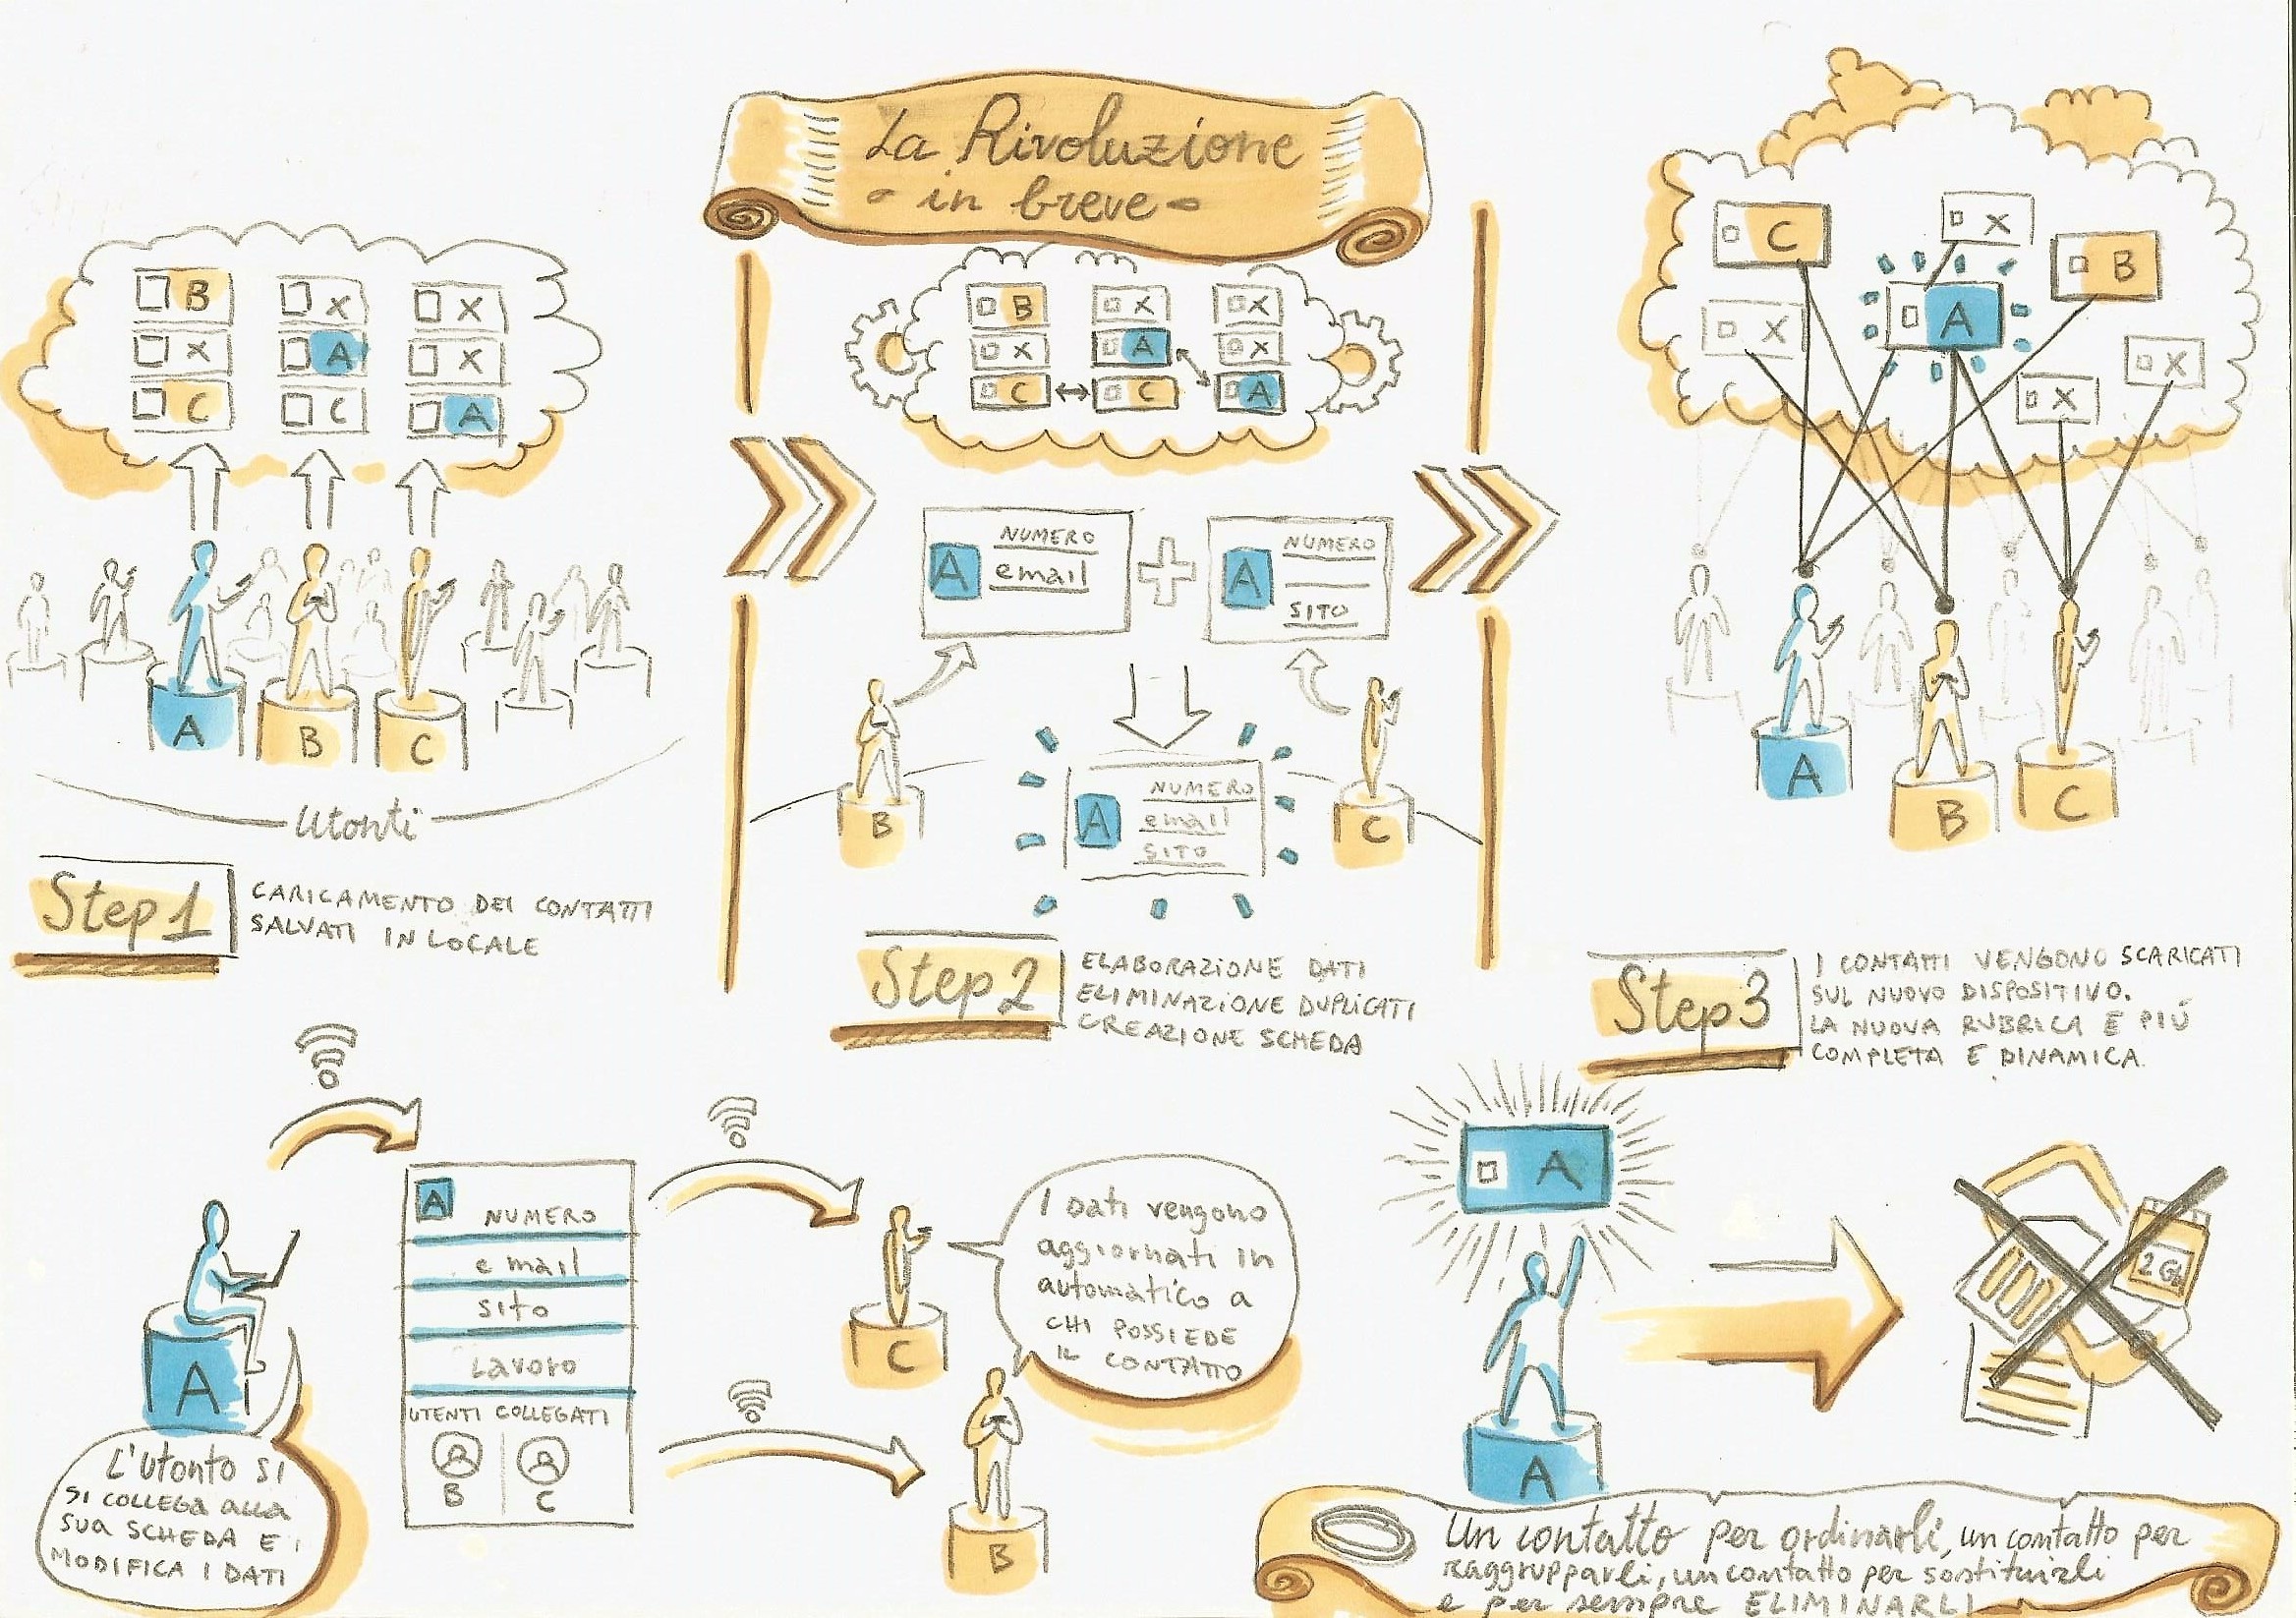 La Rivoluzione
- in breve -
B
X
C
X
A
C
X
X
A
A
B
C
Utonti
Step 1
CARICAMENTO DEI CONTATTI
SALVATI IN LOCALE
B
X
C
X
A
C
X
X
A
A
NUMERO
email
A
NUMERO
SITO
B
A
NUMERO
email
SITO
C
Step 2
ELABORAZIONE DATI
ELIMINAZIONE DUPLICATI
CREAZIONE SCHEDA
C
X
B
A
X
X
X
A
B
C
Step 3
I CONTATTI VENGONO SCARICATI
SUL NUOVO DISPOSITIVO.
LA NUOVA RUBRICA È PIÚ
COMPLETA E DINAMICA.
A
L'Utonto SI
SI COLLEGA ALLA
SUA SCHEDA E
MODIFICA I DATI
A
NUMERO
email
sito
Lavoro
UTENTI COLLEGATI
B
C
C
I Dati vengono
aggiornati in
automatico a
CHI POSSIEDE
IL CONTATTO
B
A
A
2 Gb
Un contatto per ordinarli, un contatto per
raggrupparli, un contatto per sostituirli
e per sempre ELIMINARLI